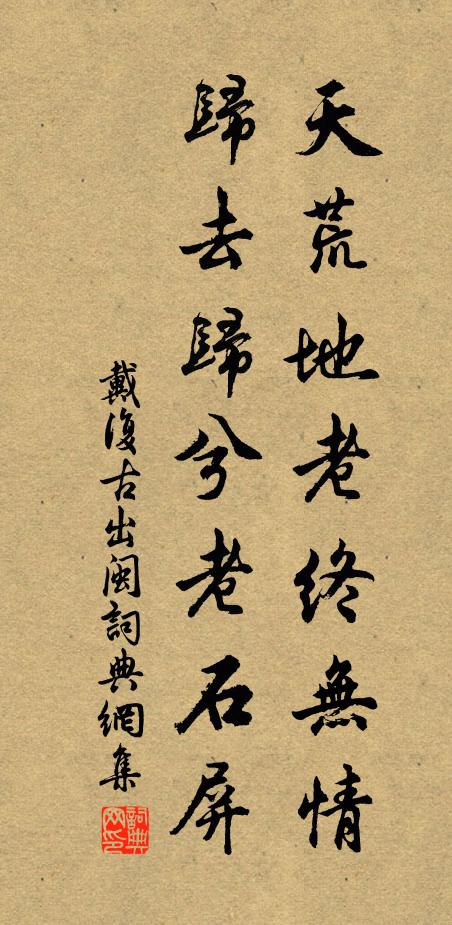 天荒地老終無情
歸去歸兮老石屏
戴復古出閩詞典網集
詞典网印